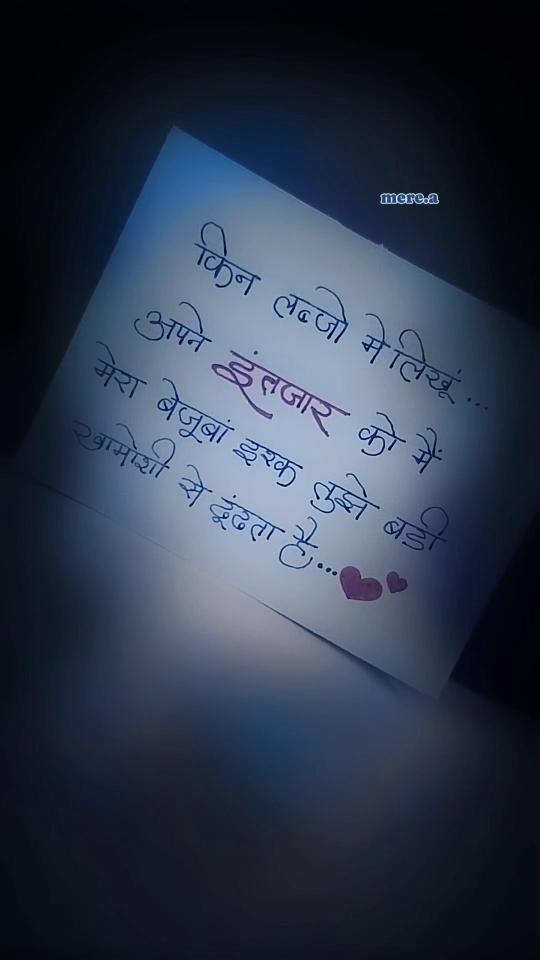 mere.a
किन लब्जो मे लिखूं...
अपने इंतजार को मैं
मेरा बेजूबां इश्क तुझे बडी
खामोशी से ढूंढता है...